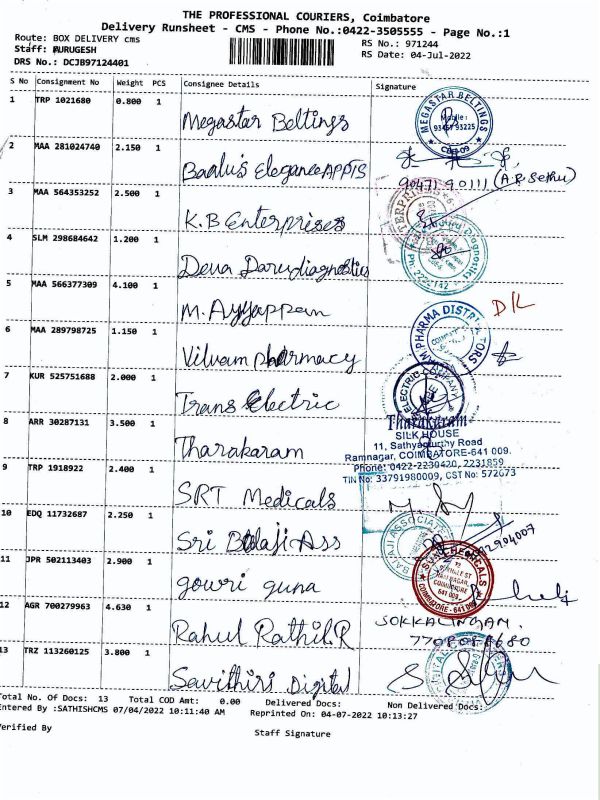 THE PROFESSIONAL COURIERS, Coimbatore
Delivery Runsheet - CMS - Phone No.:0422-3505555 - Page No.:1
Route: BOX DELIVERY cms RS No.: 971244
Staff: MURUGESH RS Date: 04-Jul-2022
DRS No.: DCJB97124401
S No Consignment No Weight PCS Consignee Details Signature
1 TRP 1021680 0.800 1 Megastar Beltings MEGASTAR BELTINGS
2 MAA 281024740 2.150 1 Baalu's Elegance APPTS
90471 90111 (A.R Sethu)
3 MAA 564353252 2.500 1 K.B Enterprises
4 SLM 298684642 1.200 1 Deva Daru diagnostics
5 MAA 566377309 4.100 1 M. Ayyappan
6 MAA 289798725 1.150 1 Vilvam pharmacy PHARMA DISTRIBUTORS
7 KUR 525751688 2.000 1 Trans Electric ELECTRIC COMPANY
8 ARR 30287131 3.500 1 Tharakaram Tharakaram
SILK HOUSE
11, Sathyamurthy Road
Ramnagar, COIMBATORE-641 009.
Phone: 0422-2230420, 2231859
TIN No: 33791980009, CST No: 572673
9 TRP 1918922 2.400 1 SRT Medicals
10 EDQ 11732687 2.250 1 Sri Balaji Ass BALAJI ASSOCIATES
11 JPR 502113403 2.900 1 gowri guna CHEMICALS
COIMBATORE - 641 009
12 AGR 700279963 4.630 1 Rahul Rathil.R SOKKALINGAM.
13 TRZ 113260125 3.800 1 Savithiri Digital
Total No. Of Docs: 13 Total COD Amt: 0.00 Delivered Docs: Non Delivered Docs:
Entered By :SATHISHCMS 07/04/2022 10:11:40 AM Reprinted On: 04-07-2022 10:13:27
Verified By Staff Signature